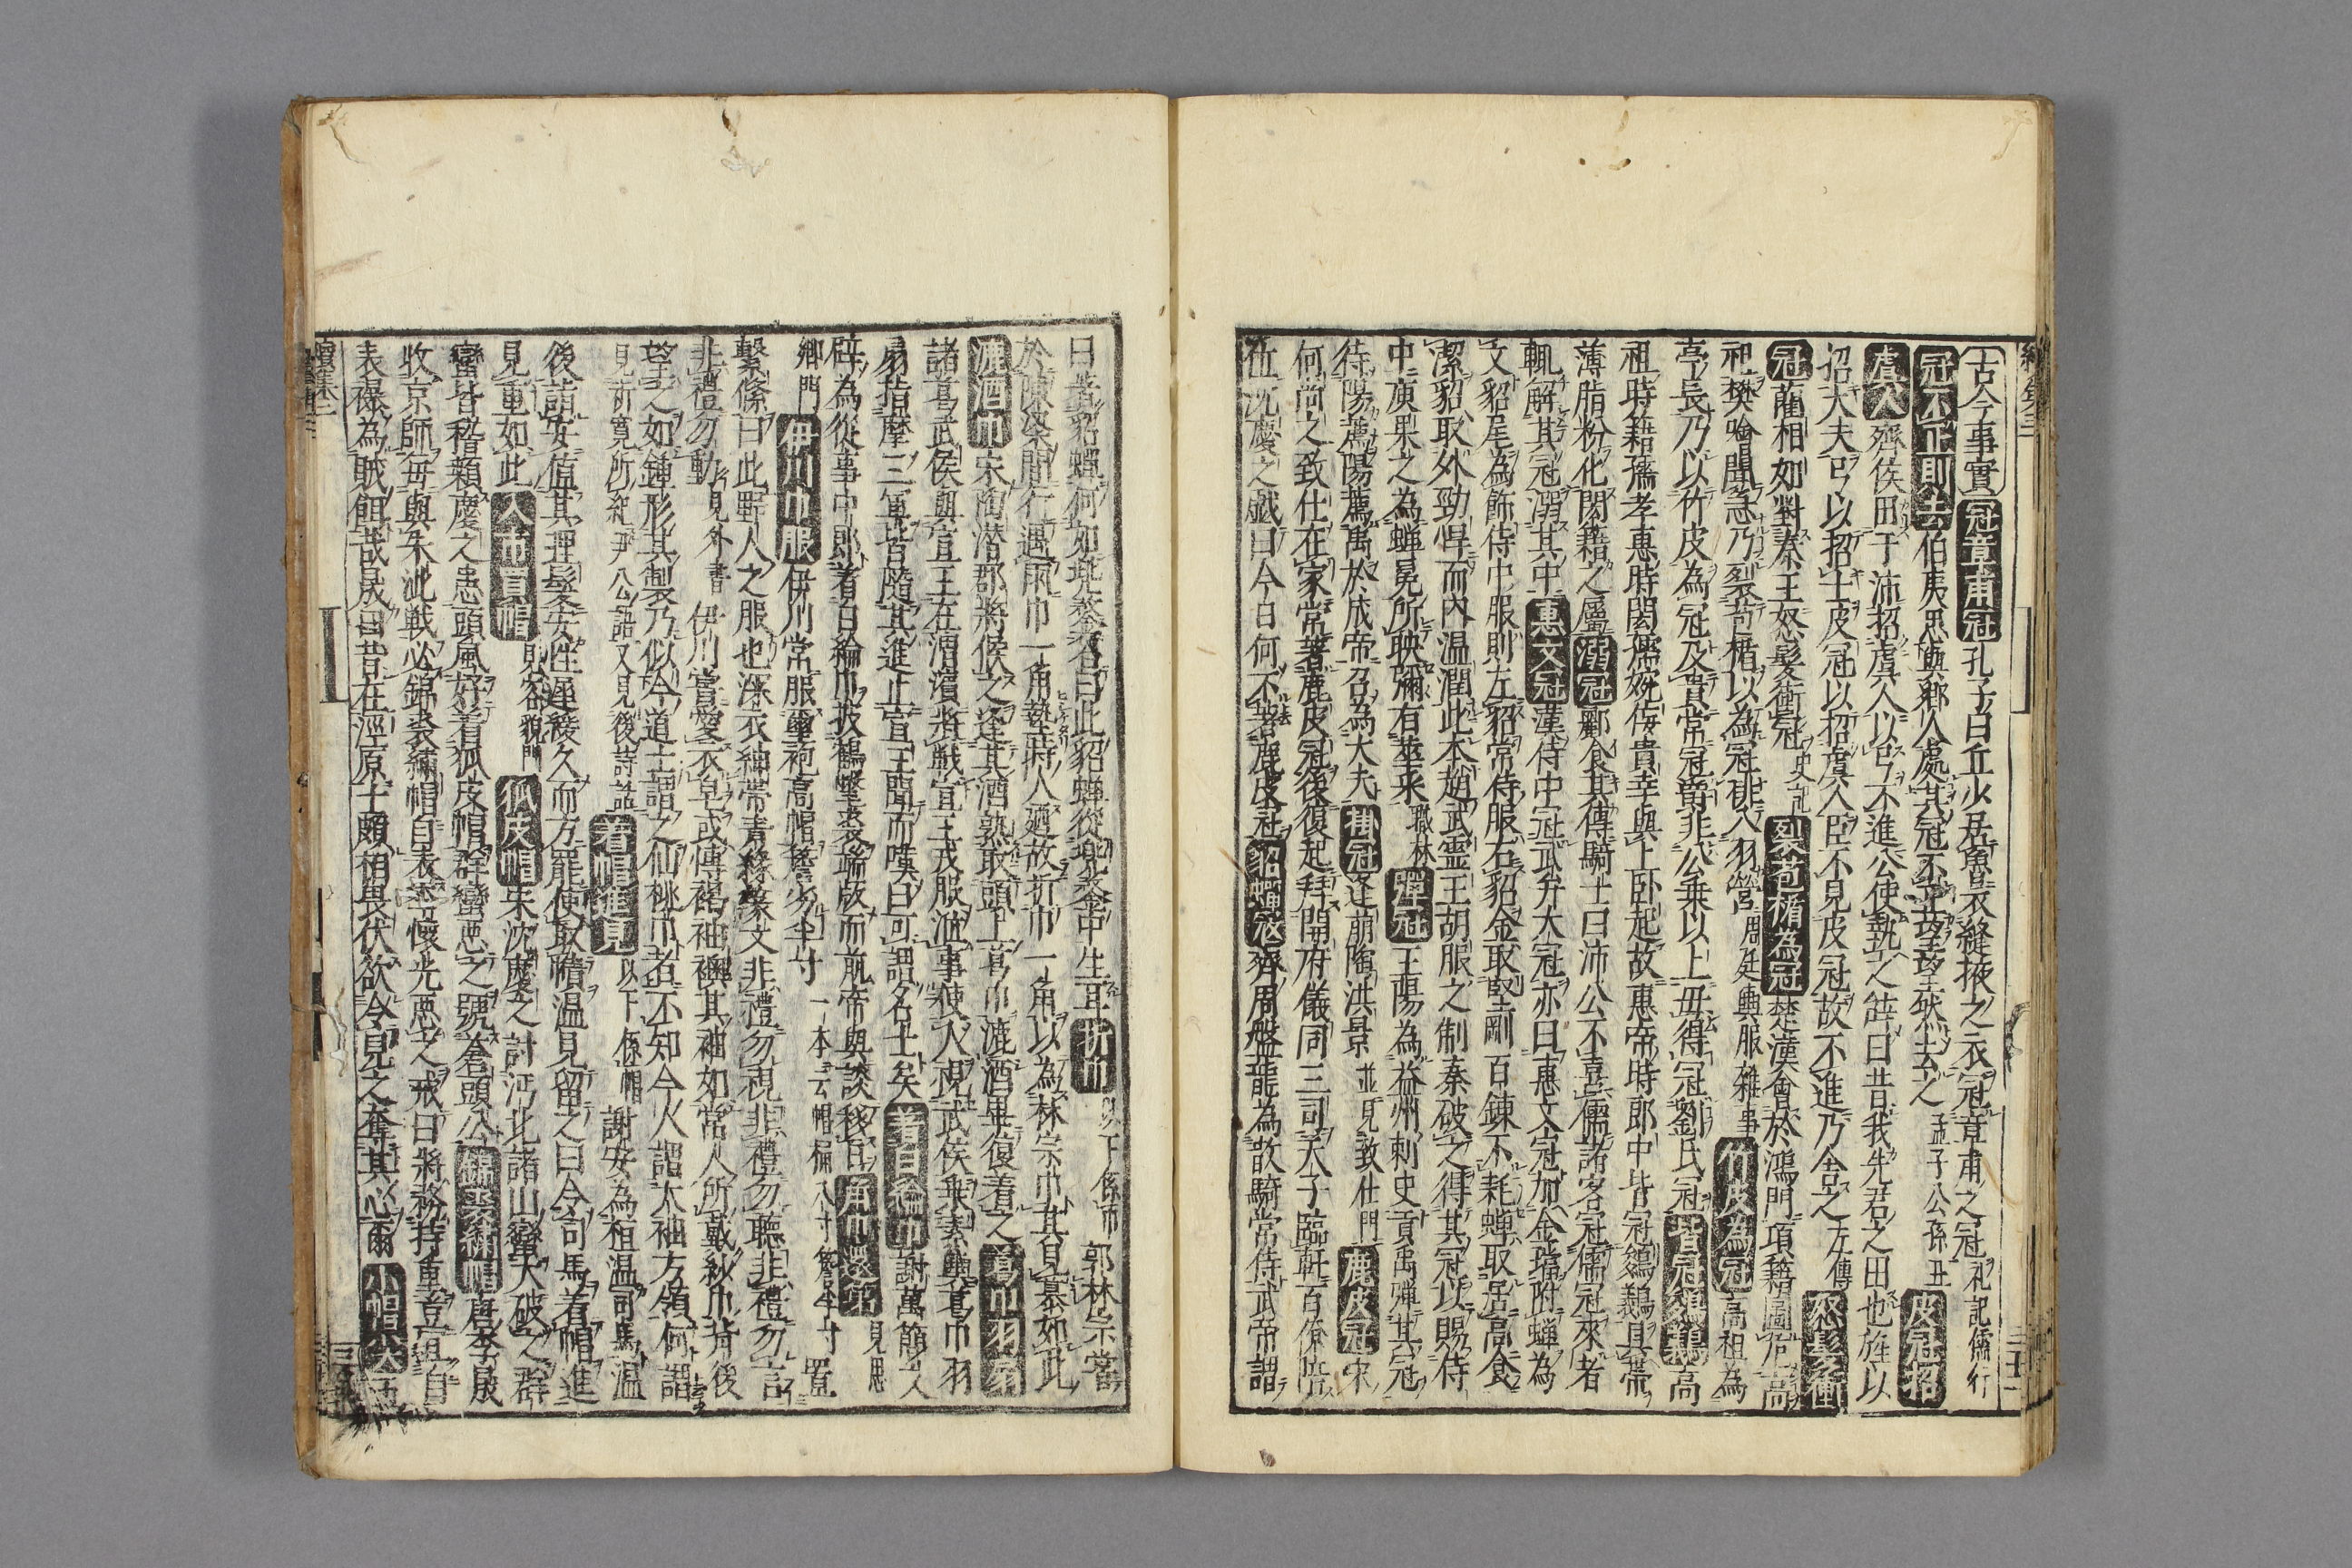 古今事實 冠章甫冠 孔子曰丘少居魯衣縫掖之衣冠章甫之冠 礼記儒行
冠不正則去 伯夷思與鄕人處其冠不正望望然去之 孟子公孫丑 皮冠招
虞人 齊侯田于沛招虞人以弓不進公使執之辞曰昔我先君之田也旌以
招大夫弓以招士皮冠以招虞人臣不見皮冠故不進乃舍之 左傳 怒髮衝
冠 藺相如對秦王怒髮衝冠 史記 裂苞楯為冠 楚漢會於鴻門項籍圖危高
祖樊噲聞急乃裂苞楯以為冠排入羽營 周廷輿服雜事 竹皮為冠 高祖為
亭長乃以竹皮為冠及貴常冠爵非公乗以上毋得冠劉氏冠 皆冠鵕鸃 高
祖時籍孺孝惠時閎孺婉佞貴幸與上卧起故惠帝時郎中皆冠鵕鸃貝帶
薄脂粉化閎籍之屬 溺冠 酈食其傳騎士曰沛公不喜儒諸客冠儒冠來者
輒解其冠溺其中 惠文冠 漢侍中冠武弁大冠亦曰惠文冠加金璫附蟬為
文貂尾為飾侍中服則左貂常侍服右貂金取堅剛百錬不耗蟬取居高食
潔貂取外勁悍而内温潤此本趙武霊王胡服之制秦破之得其冠以賜侍
中庾果之為蟬冕所映彌有華采 職林 彈冠 王陽為益州刺史貢禹彈其冠
待陽薦陽薦禹於成帝召為大夫 掛冠 逢萠陶洪景 並見致仕門 鹿皮冠 宋
何尚之致仕在家常著鹿皮冠後復起拜開府儀同三司天子臨軒百僚陪
位沈慶之戯曰今日何不著鹿皮冠 貂蟬冠 齊周盤龍為散騎常侍武帝謂
曰著貂蟬何如兜鍪答曰此貂蟬從兜鍪中生耳 折巾 以下係巾 郭林宗嘗
於陳梁間行遇雨巾一角墊時人廼故折巾一角以為林宗巾其見慕如此
漉酒巾 宋陶潜郡將候之逢其酒熟取頭上葛巾漉酒畢復着之 葛巾羽扇
諸葛武侯與宣王在渭濱將戦宣王戎服涖事使人視武侯乗素輿葛巾羽
扇指摩三軍皆隨其進止宣王聞而嘆曰可謂名士矣 着白綸巾 謝萬簡文
辟為從事中郎着白綸巾披鶴氅裘端版而前帝與談移日 角巾還第 見恩
卿門 伊川巾服 伊川常服璽袍高帽簷劣半寸 一本云帽桶八寸簷半寸 置
繫絛曰此野人之服也深衣紳帶青縁篆文非禮勿視非禮勿聽非禮勿言
非禮勿動 見外書 伊川嘗愛衣皂或傳褐袖襖其袖如常人所戴紗巾背後
望之如鍾形其製乃似今道士謂之仙桃巾者不知今人謂太袖方領何謂
見祈寛所紀尹公語又見後詩話 着帽進見 以下係帽 謝安為桓温司馬温
後詣安値其理髮安性遲緩久而方罷使取幘温見留之曰令司馬着帽進
見重如此 入市買帽 見容貌門 狐皮帽 宋沈慶之討沔北諸山蠻大破之群
蠻皆稽顙慶之患頭風好着狐皮帽群蠻惡之號蒼頭公 錦裘綉帽 唐李晟
收京師毎與朱泚戦必錦裘綉帽自表李懐光悪之戒曰將務持重豈宜自
表襮為賊餌哉晟曰昔在涇原士頗相畏伏欲令見之奪其心爾